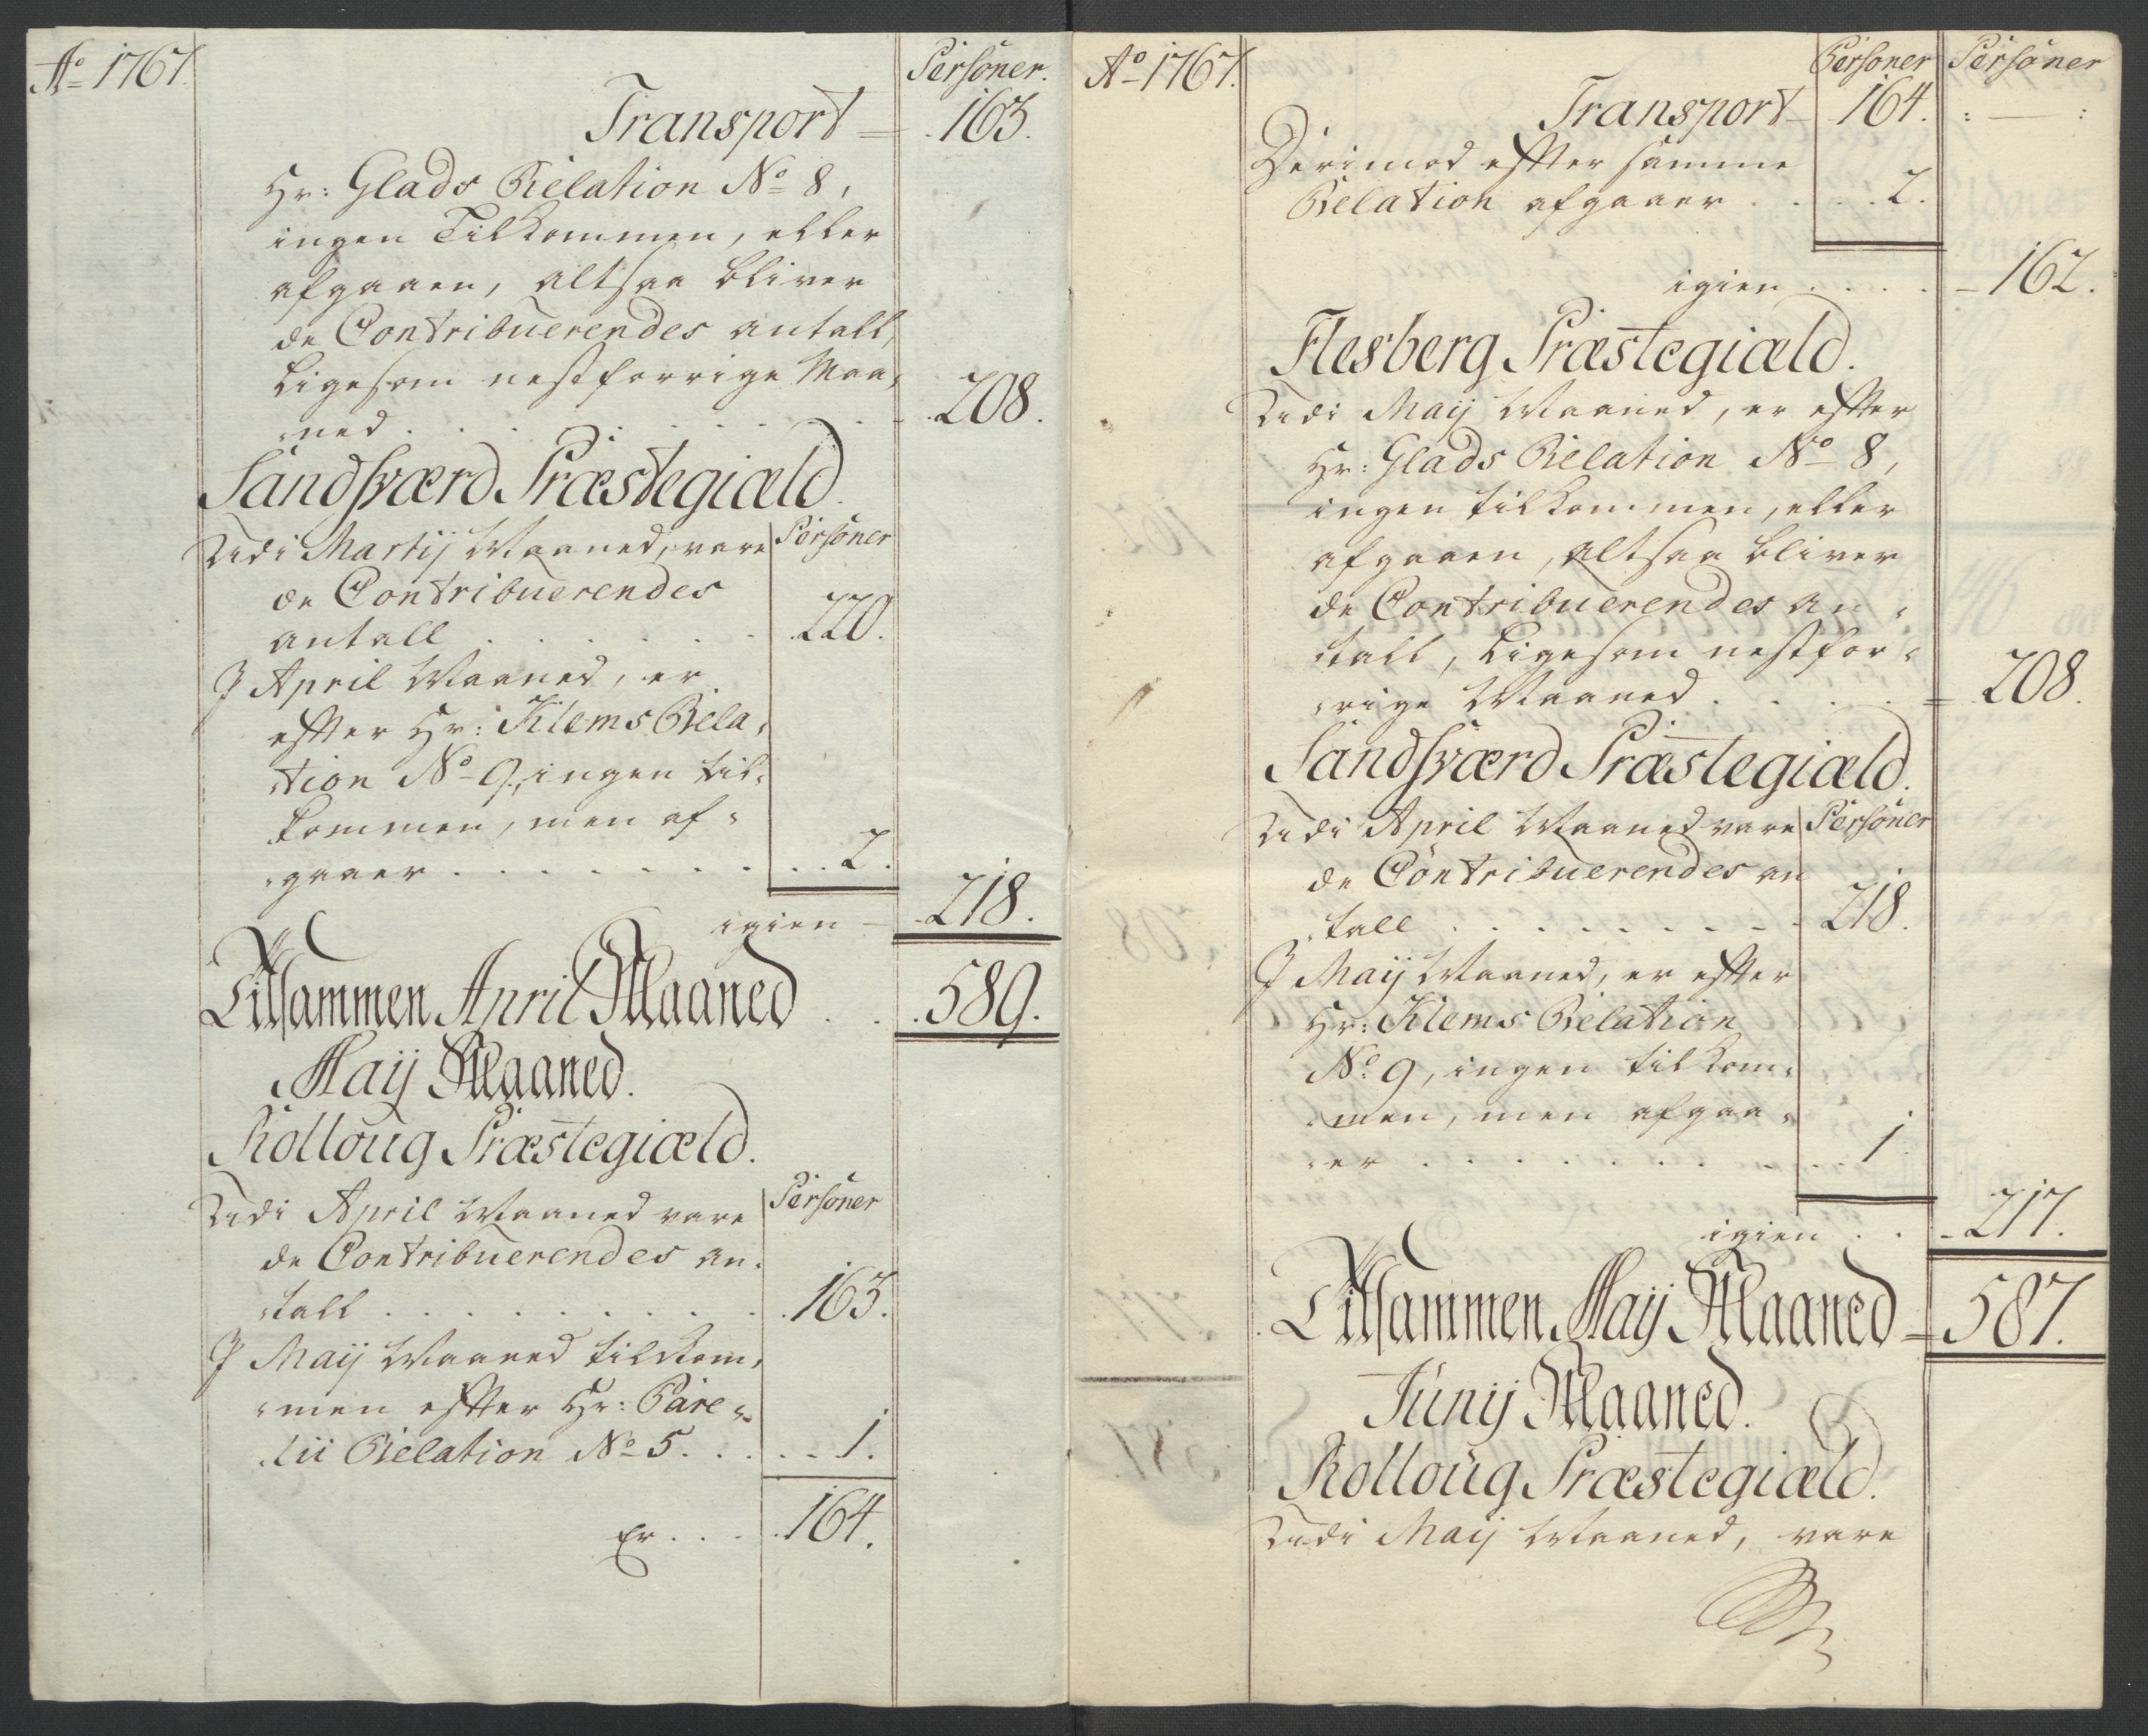 Ao 1767.
Personer.
Transport 163.
Hr: Glads Relation No 8,
ingen Tilkommen, eller
afgaaen, altsaa bliver
de Contribuerendes antall,
ligesom nestforrige Maa,
,ned . . . . . . . . 208.
Sandsværd Præstegiæld.
Udi Martij Maaned, vare Personer
de Contribuerendes
antall . . . . . . 220.
I April Maaned, er
efter Hr: Klems Rela,
,tion No 9, ingen til,
kommen, men af,
,gaaer . . . . . . . . 2.
igien 218.
Tilsammen April Maaned . . 589.
Maij Maaned.
Rolloug Præstegiæld.
Udi April Maaned vare Personer
de Contribuerendes an,
,tall . . . . . . . . . 163.
I Maij Maaned tilkom,
,men efter Hr: Pare,
,lii Relation No 5. . . . 1.
Er . . . 164.
Ao 1767.
Personer Personer
Transport 164. : — :
Derimod efter samme
Relation afgaaer . . . . 2.
igien . . . . 162.
Flesberg Præstegiæld.
Udi Maij Maaned, er efter
Hr: Glads Relation No 8,
ingen tilkommen, eller
afgaaen, altsaa bliver
de Contribuerendes an,
,tall, ligesom nestfor,
,rige Maaned . . . . 208.
Sandsværd Præstegiæld.
Udi April Maaned vare Personer
de Contribuerendes an
,tall . . . . . . . . . 218.
I Maij Maaned, er efter
Hr: Klems Relation
No 9, ingen tilkom,
,men, men afgaa,
,er . . . . . . . . 1.
igien . . 217.
Tilsammen Maij Maaned 587.
Junij Maaned.
Rolloug Præstegiæld.
Udi Maij Maaned, vare